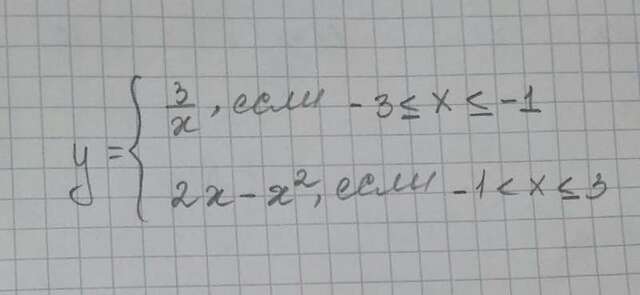 y = { 3/x, если -3 ≤ x ≤ -1
2x - x², если -1 < x ≤ 3